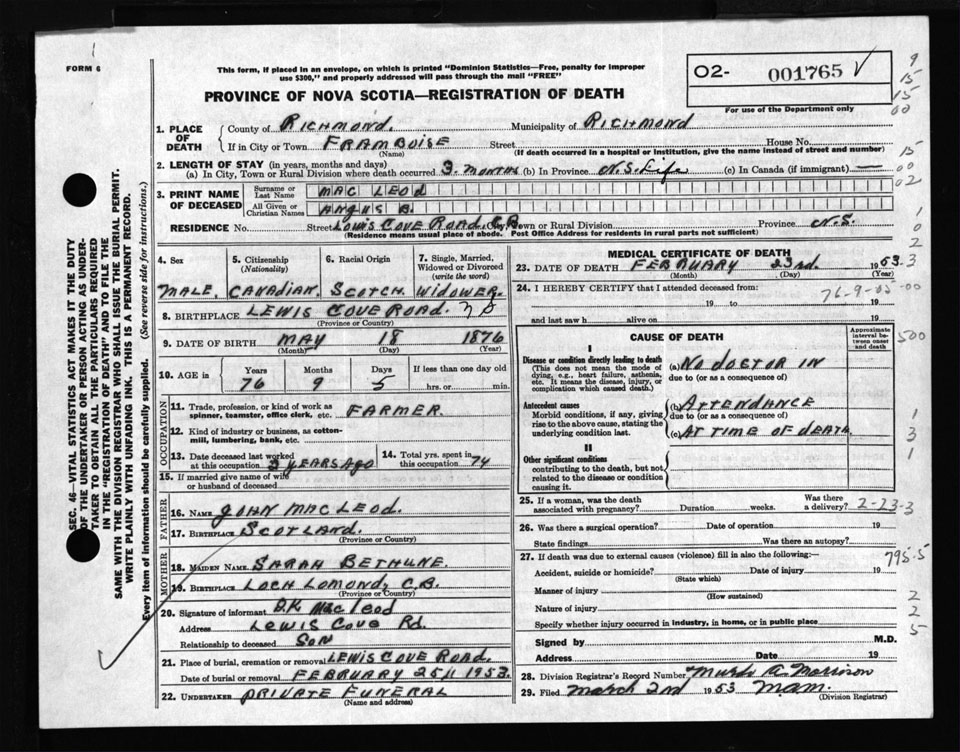 FORM 6
This form, if placed in an envelope, on which is printed "Dominion Statistics—Free, penalty for improper
use $300," and properly addressed will pass through the mail "FREE"
PROVINCE OF NOVA SCOTIA—REGISTRATION OF DEATH
O2- 001765 ✓
For use of the Department only
1. PLACE OF DEATH
County of RICHMOND. Municipality of RICHMOND
If in City or Town FRAMBOISE Street House No.
(Name) (If death occurred in a hospital or institution, give the name instead of street and number)
2. LENGTH OF STAY (in years, months and days)
(a) In City, Town or Rural Division where death occurred 3. MONTHS (b) In Province N.S. Life (c) In Canada (if immigrant) —
3. PRINT NAME OF DECEASED
Surname or Last Name MAC LEOD
All Given or Christian Names ANGUS B.
RESIDENCE No. Street LOUIS COVE ROAD. C.B. City, Town or Rural Division Province N.S.
(Residence means usual place of abode. Post Office Address for residents in rural parts not sufficient)
4. Sex
MALE.
5. Citizenship (Nationality)
CANADIAN.
6. Racial Origin
SCOTCH.
7. Single, Married, Widowed or Divorced (write the word)
WIDOWER.
8. BIRTHPLACE LEWIS COVE ROAD.
(Province or Country)
9. DATE OF BIRTH MAY 18 1876
(Month) (Day) (Year)
10. AGE in Years Months Days If less than one day old
76 9 5 hrs. or min.
OCCUPATION
11. Trade, profession, or kind of work as spinner, teamster, office clerk, etc. FARMER.
12. Kind of industry or business, as cotton-mill, lumbering, bank, etc.
13. Date deceased last worked at this occupation 2 YEARS AGO
14. Total yrs. spent in this occupation 74
15. If married give name of wife or husband of deceased
FATHER
16. NAME JOHN MAC LEOD.
17. BIRTHPLACE SCOTLAND.
(Province or Country)
MOTHER
18. MAIDEN NAME SARAH BETHUNE.
19. BIRTHPLACE LOCH LOMOND, C.B.
(Province or Country)
20. Signature of informant D.K. MacLeod
Address LEWIS COVE Rd.
Relationship to deceased SON
21. Place of burial, cremation or removal LEWIS COVE ROAD.
Date of burial or removal FEBRUARY 25 1953.
22. UNDERTAKER PRIVATE FUNERAL
(Name and address)
MEDICAL CERTIFICATE OF DEATH
23. DATE OF DEATH FEBRUARY 23rd. 1953.
(Month) (Day) (Year)
24. I HEREBY CERTIFY that I attended deceased from:
19 to 19
76-9-05-00
and last saw h alive on 19
CAUSE OF DEATH
Approximate interval between onset and death
I
Disease or condition directly leading to death
(This does not mean the mode of dying, e.g., heart failure, asthenia, etc. It means the disease, injury, or complication which caused death.)
(a) NO DOCTOR IN
due to (or as a consequence of)
Antecedent causes
Morbid conditions, if any, giving rise to the above cause, stating the underlying condition last.
(b) ATTENDANCE
due to (or as a consequence of)
(c) AT TIME OF DEATH.
II
Other significant conditions
contributing to the death, but not related to the disease or condition causing it.
25. If a woman, was the death associated with pregnancy? Duration weeks. Was there a delivery?
2-23-3
26. Was there a surgical operation? Date of operation 19
State findings Was there an autopsy?
27. If death was due to external causes (violence) fill in also the following:
795.5
Accident, suicide or homicide? Date of injury 19
(State which)
Manner of injury
(How sustained)
Nature of injury
Specify whether injury occurred in industry, in home, or in public place
Signed by M.D.
Address Date 19
28. Division Registrar's Record Number Murdo A Morrison
29. Filed March 2nd 1953 M.A.M.
(Division Registrar)
SEC. 46—VITAL STATISTICS ACT MAKES IT THE DUTY
OF THE UNDERTAKER OR PERSON ACTING AS UNDER-
TAKER TO OBTAIN ALL THE PARTICULARS REQUIRED
IN THE "REGISTRATION OF DEATH" AND TO FILE THE
SAME WITH THE DIVISION REGISTRAR WHO SHALL ISSUE THE BURIAL PERMIT.
WRITE PLAINLY WITH UNFADING INK. THIS IS A PERMANENT RECORD.
Every item of information should be carefully supplied. (See reverse side for instructions.)
9
15
15
00
15
00
02
1
0
2
3
500
1
3
1
2
2
5